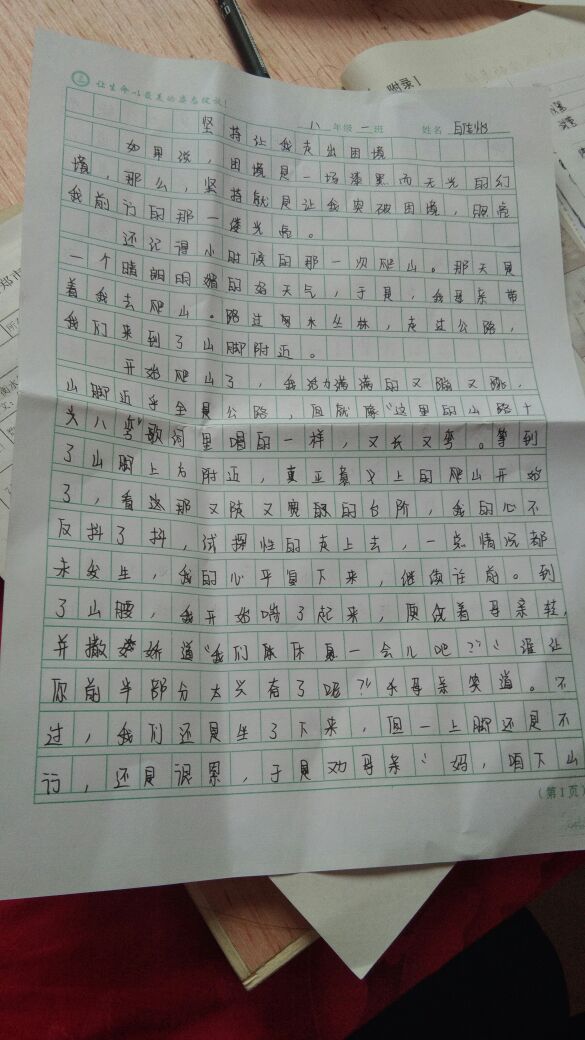 让生命以最美的姿态绽放！
附录1
八年级一班 姓名
坚持让我走出困境
如果说，困境是一场漆黑而无光的幻
境，那么，坚持就是让我突破困境，照亮
我前行的那一缕光亮。
还记得小时候的那一次爬山。那天是
一个晴朗明媚的好天气，于是，我母亲带
着我去爬山。路过 水丛林，走过公路，
我们来到了山脚附近。
开始爬山了，我活力满满的又蹦又跳，
山脚近乎全是公路，但就像“这里的山路十
八弯”歌词里唱的一样，又长又弯。等到
了山脚上方附近，真正意义上的爬山开始
了，看这那又陡又宽 的台阶，我的心不
反抖了抖，试探性的走上去，一点情况都
未发生，我的心平复下来，继续往前。到
了山腰，我开始喘了起来， 母亲
并撒娇道“我们 休息一会儿吧？”“谁让
你前半部分太兴奋了呢？”母亲笑道。不
过，我们还是坐了下来，但一上脚还是不
行，还是很累，于是劝母亲“妈，咱下山
（第1页）